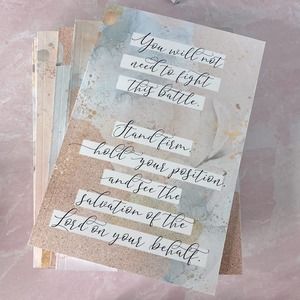 You will not
need to fight
this battle.
Stand firm,
hold your position,
and see the
salvation of the
Lord on your behalf.